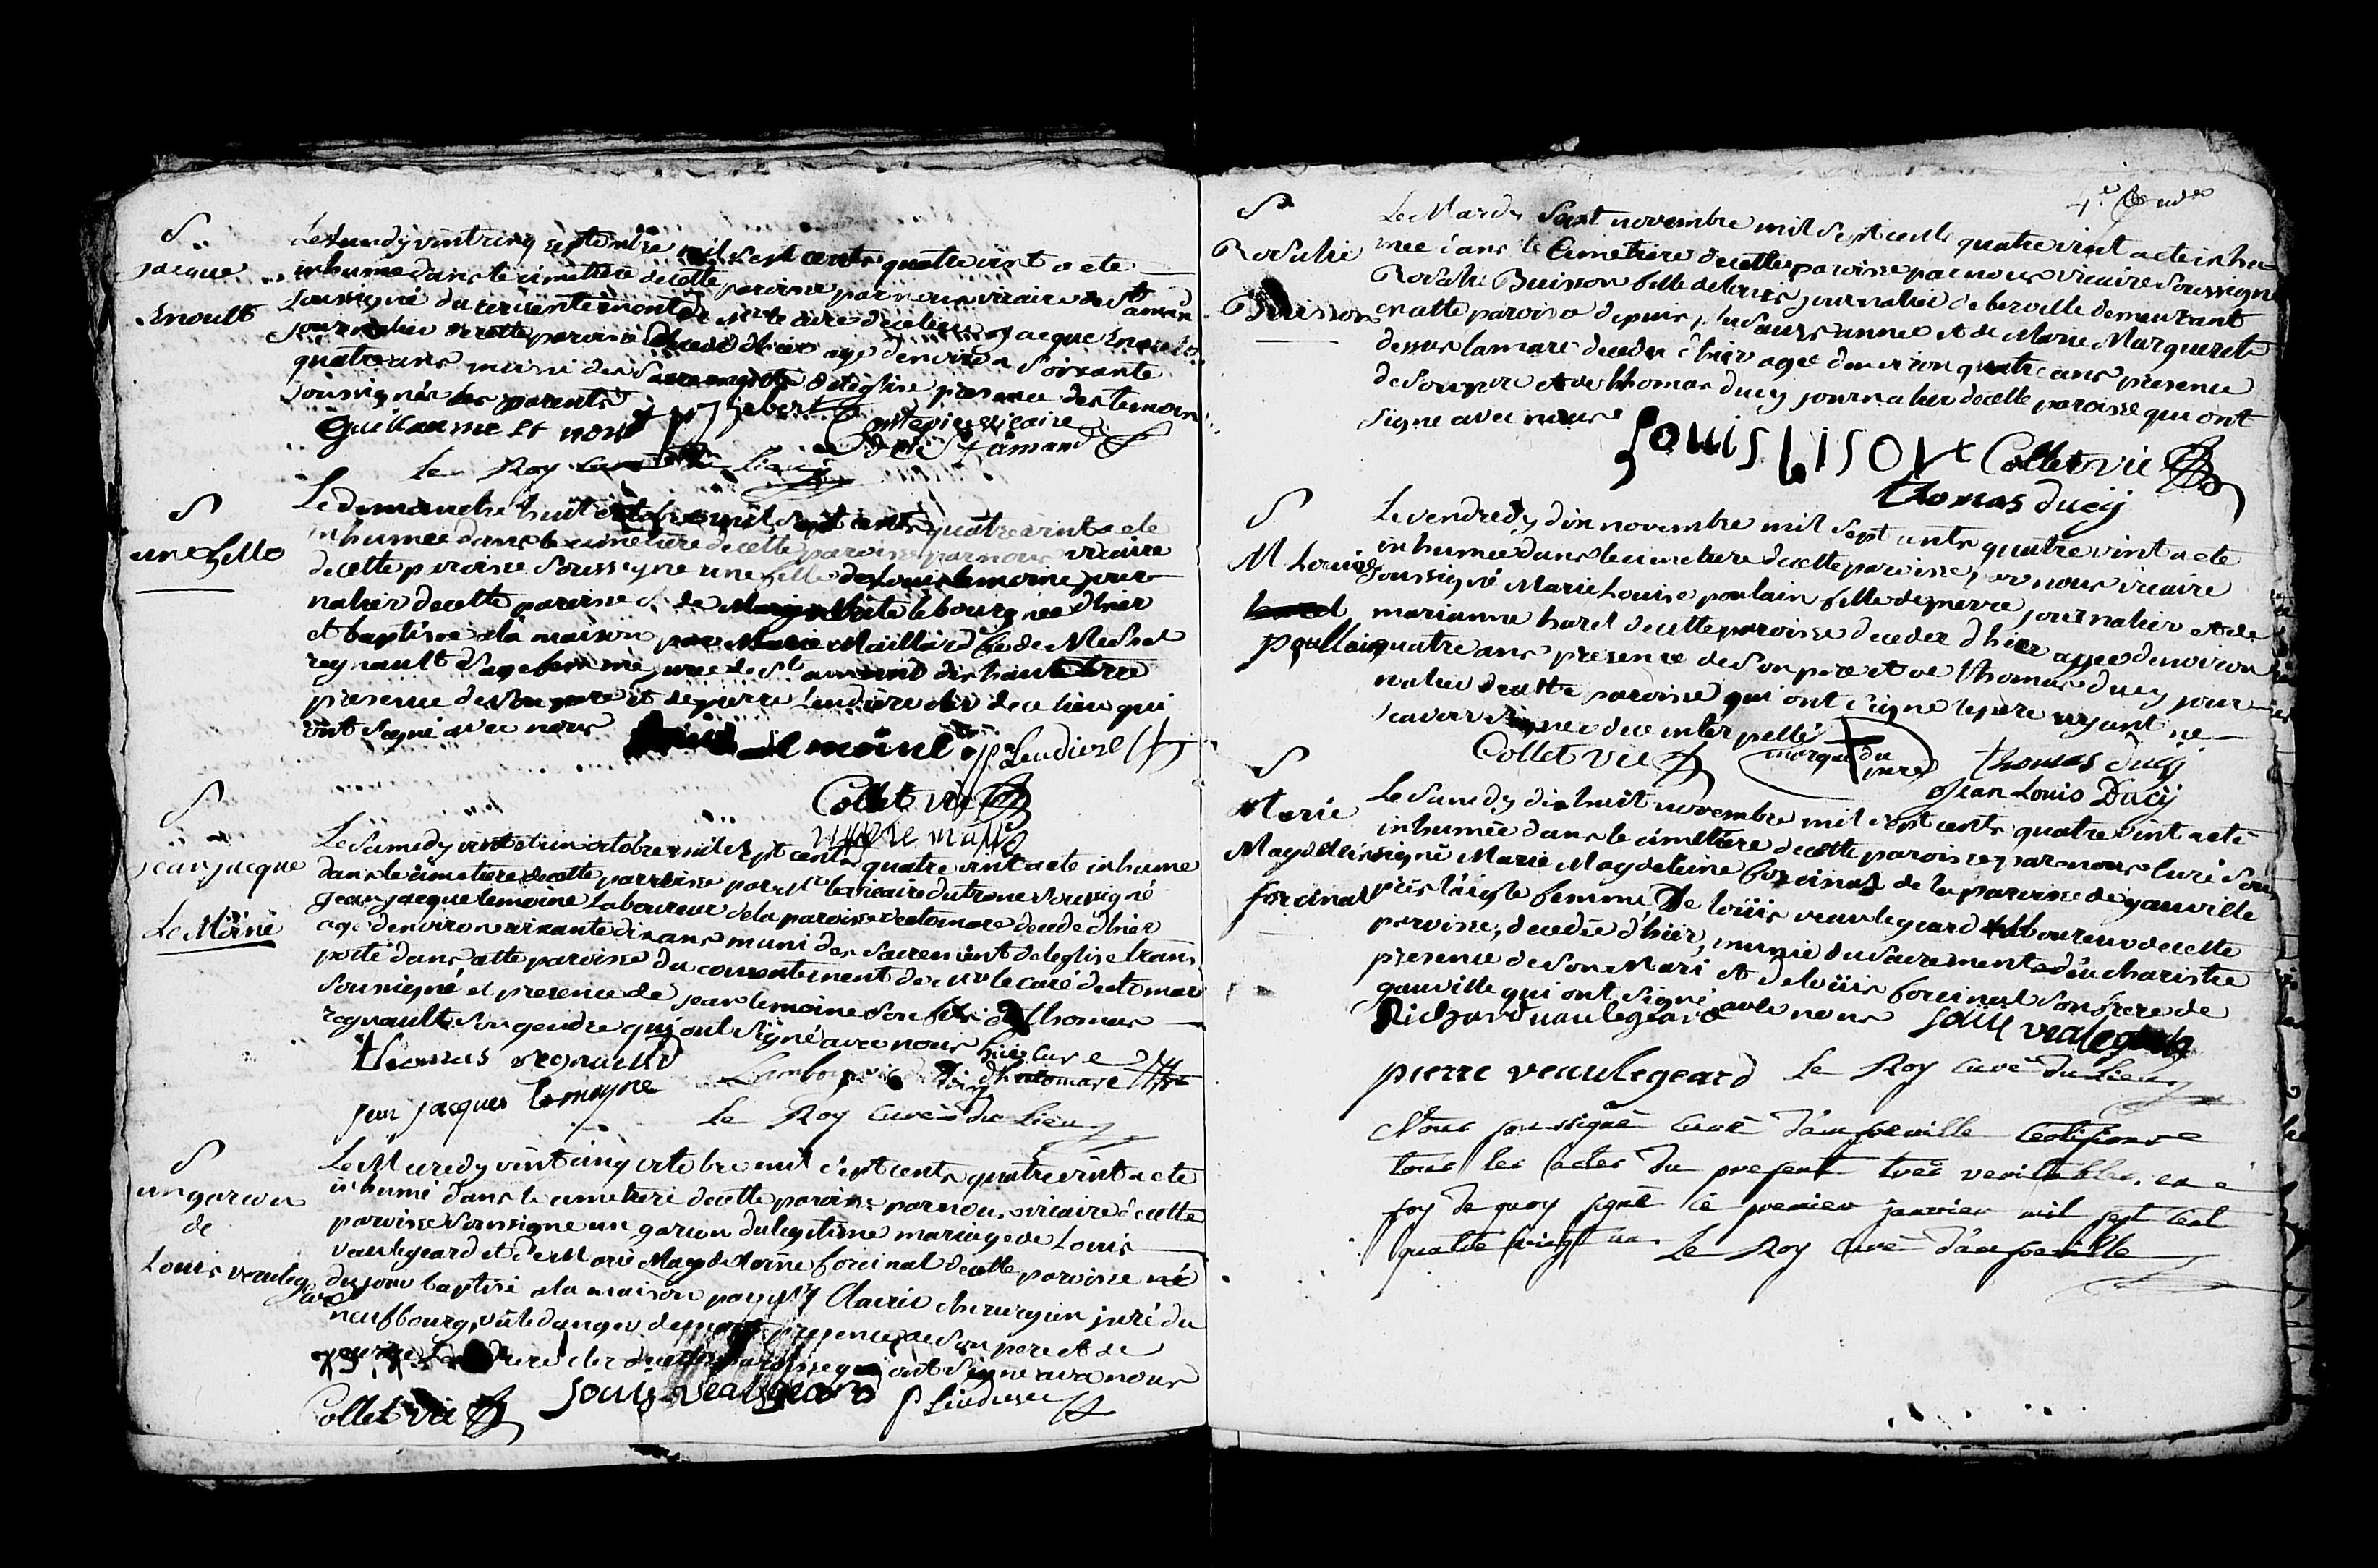 S
jacque
Enoult
Le lundy vint cinq septembre mil sept cents quatre vint a ete
inhumé dans le cimetiere de cette paroisse par nous vicaire de St amand
soussigné du consentement de Mr le curé de ce lieu jacque Enoult
journalier de cette paroisse decedé d'hier agé d'environ soixante
quatre ans muni des sacrements de l'eglise presence des temoins
soussignés les parents
Guillaume Et noult j p hebert
vicaire
de St amand
le Roy curé du Lieu
S
une fille
Le dimanche huit octobre mil sept cents quatre vint a ete
inhumée dans le cimetiere de cette paroisse par nous vicaire
de cette paroisse soussigne une fille de Louis lemoine jour
nalier de cette paroisse et de lebourg née d'hier
et baptisée a la maison par Marie Maillard fe de Michel
regnault sage femme juree de St amand des hautes terre
presence de son pere et de pierre Lendiere clerc de ce lieu qui
ont signé avec nous
Le moine p Lendiere
Collet vic
S
jean jacque
Le Moine
Le samedy vint et un octobre mil sept cents quatre vint a ete inhume
dans le cimetiere de cette parroisse par Mr le vicaire du trone soussigné
jean jacque lemoine Laboureur de la paroisse d'ectomare decedé d'hier
agé d'environ soixante dix ans muni des sacrement de l'eglise trans
porté dans cette paroisse du consentement de Mr le curé d'ectomare
soussigné et presence de jean lemoine son fils et thomas
regnault son gendre qui ont signé avec nous
thomas regnault
jean jacques lemoyne
le Roy curé du Lieu
S
un garcon
de
Louis veaulegeard
Le Mercredy vint cinq octobre mil sept cents quatre vint a ete
inhumé dans le cimetiere de cette paroisse par nous vicaire de cette
paroisse soussigne un garcon du legitime mariage de Louis
veaulegeard et de Marie Magdeleine forcinal de cette paroisse né
du jour baptisé a la maison par Mr Clavrie chirurgien juré du
neufbourg vu le danger de mort presence de son pere et de
pierre Lendiere clerc de cette paroisse qui ont signe avec nous
Collet vic Louis veaulegeard p Lendiere
S
Rosalie
Buisson
Le Mardy sept novembre mil sept cents quatre vint a ete inhu
mée dans le Cimetiere de cette paroisse par nous vicaire soussigné
Rosalie Buisson fille de Louis journalier de berville demeurant
en cette paroisse depuis plusieurs année et de Marie Marguerite
dessus lamare decedée d'hier agée d'environ quatre ans presence
de son pere et de thomas ducy journalier de cette paroisse qui ont
signe avec nous
Louis bisont Collet vic
thomas ducy
S
M Louise
harel
poullain
Le vendredy dix novembre mil sept cents quatre vint a ete
inhumée dans le cimetiere de cette paroisse par nous vicaire
soussigné Marie Louise poulain fille de pierre journalier et de
marianne harel de cette paroisse decedée d'hier agée d'environ
quatre ans presence de son pere et de thomas ducy jour
nalier de cette paroisse qui ont signe le pere ayant ne
scavoir signer de ce interpellé
Collet vic marque du pere thomas ducy
Jean Louis Ducy
S
Marie
Magdeleine
forcinal
Le samedy dix huit novembre mil sept cents quatre vint a eté
inhumée dans le cimetiere de cette paroisse par nous curé sous
signé Marie Magdeleine forcinal de la paroisse de gauville
près l'aigle femme de loüis veaulegeard laboureur de cette
paroisse, decedée d'hier, munie du sacrement d'eucharistie
presence de son Mari et de loüis forcinal son frere de
gauville qui ont signé avec nous
Richard vaulegeard Louis vealegeard
pierre veaulegeard le Roy curé du Lieu
Nous soussigné curé d'amfreville certifions
tous les actes du present tres veritables, en
foy de quoy signé ce premier janvier mil sept cent
quatre vingt un. Le Roy curé d'amfreville